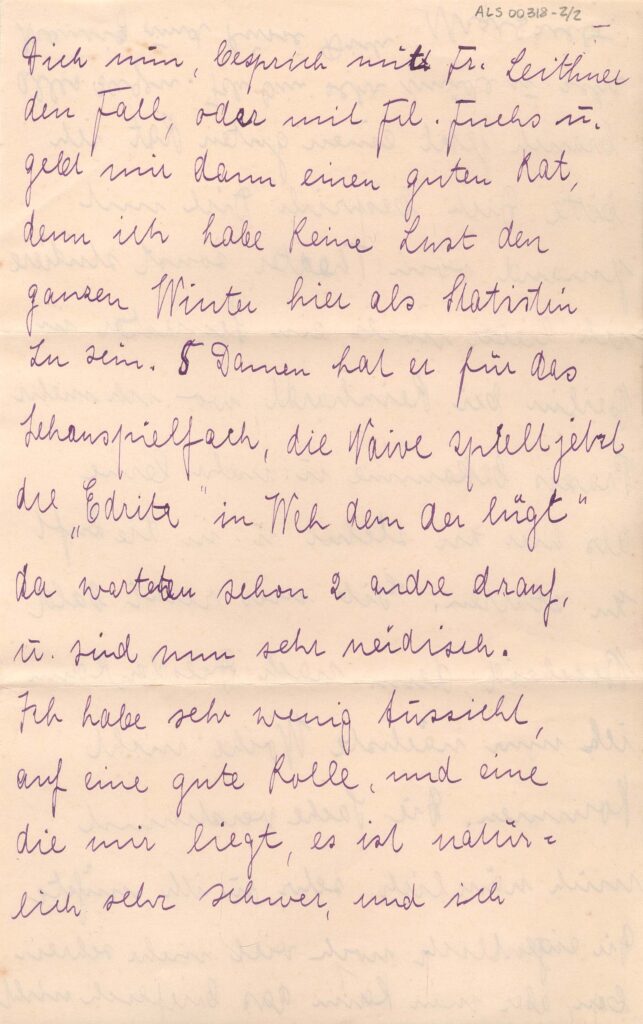 ALS 00318-2/2
Dich nun, besprich mit Fr. Leithner
den Fall, oder mit Frl. Fuchs u.
gebt mir dann einen guten Rat,
denn ich habe keine Lust den
ganzen Winter hier als Statistin
zu sein. 5 Damen hat er für das
Schauspielfach, die Naive spielt jetzt
die „Edrita" in Weh dem der lügt"
da warteten schon 2 andre drauf,
u. sind nun sehr neidisch.
Ich habe sehr wenig Aussicht,
auf eine gute Rolle, und eine
die mir liegt, es ist natür=
lich sehr schwer, und ich